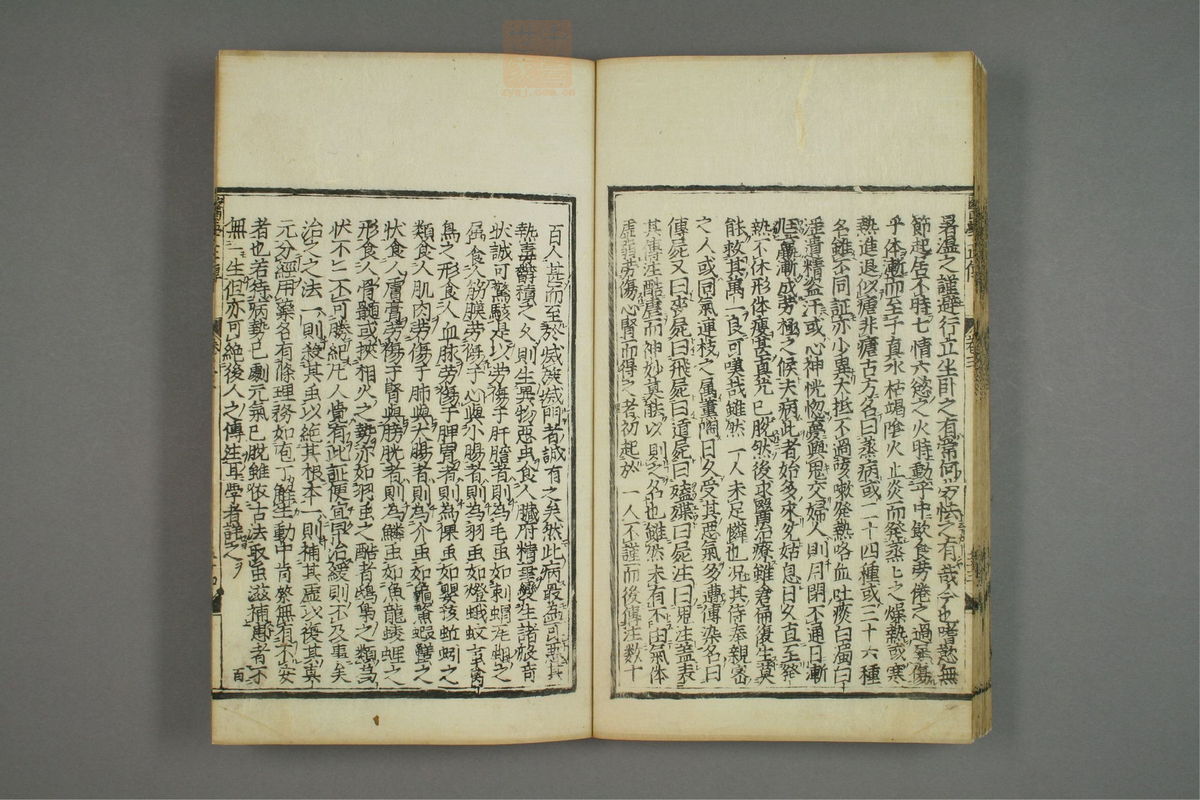 暑温之謹避行立坐臥之有常何労怯之有哉予也嗜慾無
節起居不時七情六慾之火時動乎中飲食労倦之過屡傷
乎体漸而至于真水枯竭陰火上炎而發蒸々之燥熱或寒
熱進退似瘧非瘧古方名曰蒸病或二十四種或三十六種
名雖不同証亦少異大抵不過咳嗽発熱咯血吐痰白濁白
淫遺精盗汗或心神恍惚夢與鬼交婦人則月閉不通日漸
尫羸漸成労極之候夫病此者始多求多姑息日久直至発
熱不休形体瘦甚真元已脱然後求醫治療雖倉扁復生莫
能救其萬一良可嘆哉雖然一人未足憐也况其侍奉親密
之人或同氣連枝之属薫陶日久受其悪氣多遭傳染名曰
傳屍又曰喪屍曰飛屍曰遁屍曰殗殜曰屍注曰鬼注蓋表
其傳注酷虐而神妙莫能以則之名也雖然未有不由氣体
虚弱労傷心腎而得之者初起於一人不謹而後傳注数十
百人甚而至於滅族滅門者誠有之矣然此病最為可悪其
熱毒欝積之久則生異物悪虫食人臓府精華變生諸般奇
状誠可驚駭是以労傷于肝膽者則為毛虫如刺蝟之
属食人筋膜労傷于心與小腸者則為羽虫如燈蛾蚊䖟禽
鳥之形食人血脉労傷于脾胃者則為倮虫如嬰孩蚯蚓之
類食人肌肉労傷于肺與大腸者則為介虫如龜鱉蝦蠏之
状食人膚膏労傷于腎與膀胱者則為鱗虫如魚龍鯪鯉之
形食人骨髓或挾相火之勢亦如羽虫之酷者鴟梟之類為
状不一不可勝紀凡人覺有此証便宜早治緩則不及事矣
治之之法一則殺其虫以絶其根本一則補其虚以復其真
元分經用藥各有條理務如庖丁解牛動中肯綮無有不安
者也若待病勢已劇元氣已脱雖依古法取虫滋補患者不
無一生但亦可絶後人之傳注耳學者詳之
百